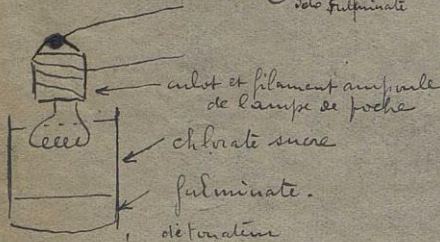 fulminate
culot et filament ampoule
de lampe de poche
chlorate sucre
fulminate.
détonateur